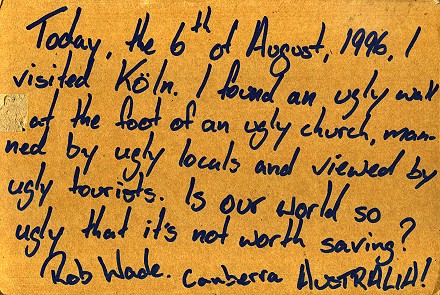 Today, the 6th of August, 1996, I
visited Köln. I found an ugly wall
at the foot of an ugly church, man-
ned by ugly locals and viewed by
ugly tourists. Is our world so
ugly that it's not worth saving?
Rob Wade. Canberra AUSTRALIA!